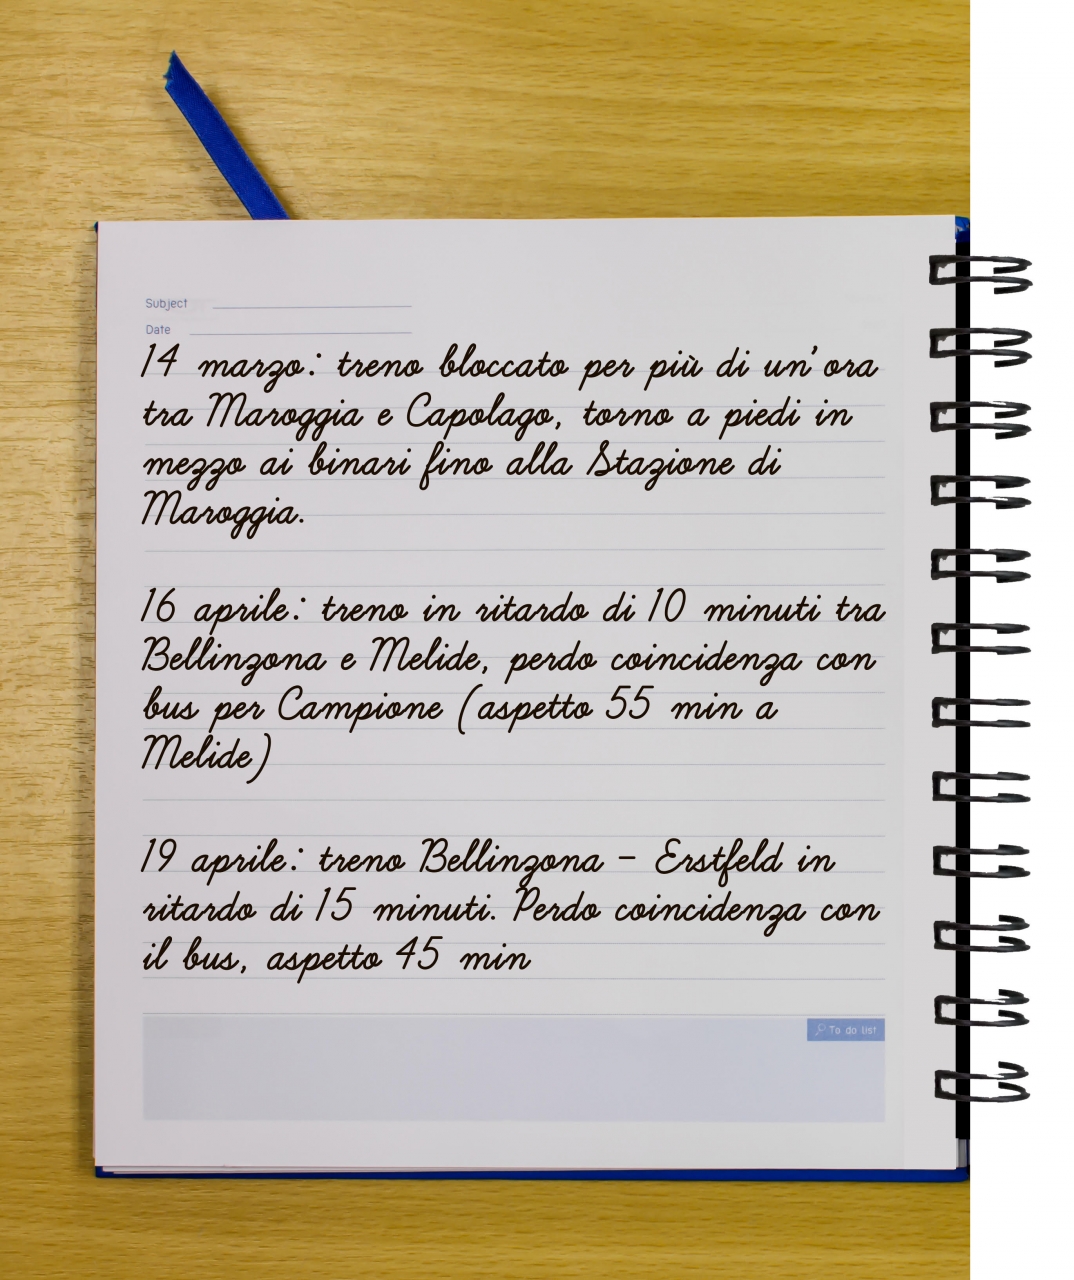 Subject
Date
14 marzo: treno bloccato per più di un'ora
tra Maroggia e Capolago, torno a piedi in
mezzo ai binari fino alla Stazione di
Maroggia.
16 aprile: treno in ritardo di 10 minuti tra
Bellinzona e Melide, perdo coincidenza con
bus per Campione (aspetto 55 min a
Melide)
19 aprile: treno Bellinzona - Erstfeld in
ritardo di 15 minuti. Perdo coincidenza con
il bus, aspetto 45 min
To do list